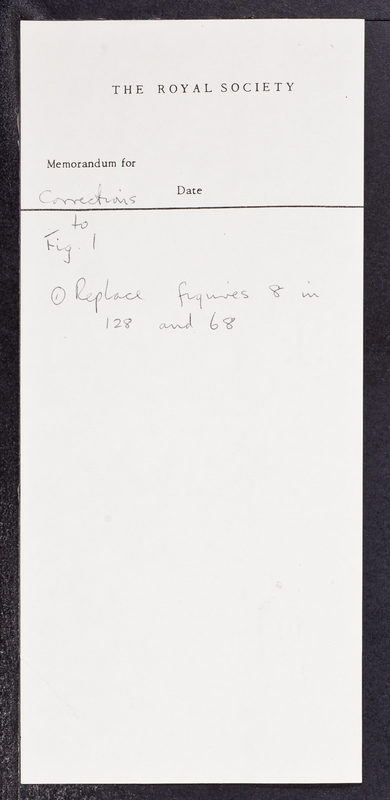 THE ROYAL SOCIETY
Memorandum for
Corrections Date
to
Fig. 1
① Replace figures 8 in
128 and 68